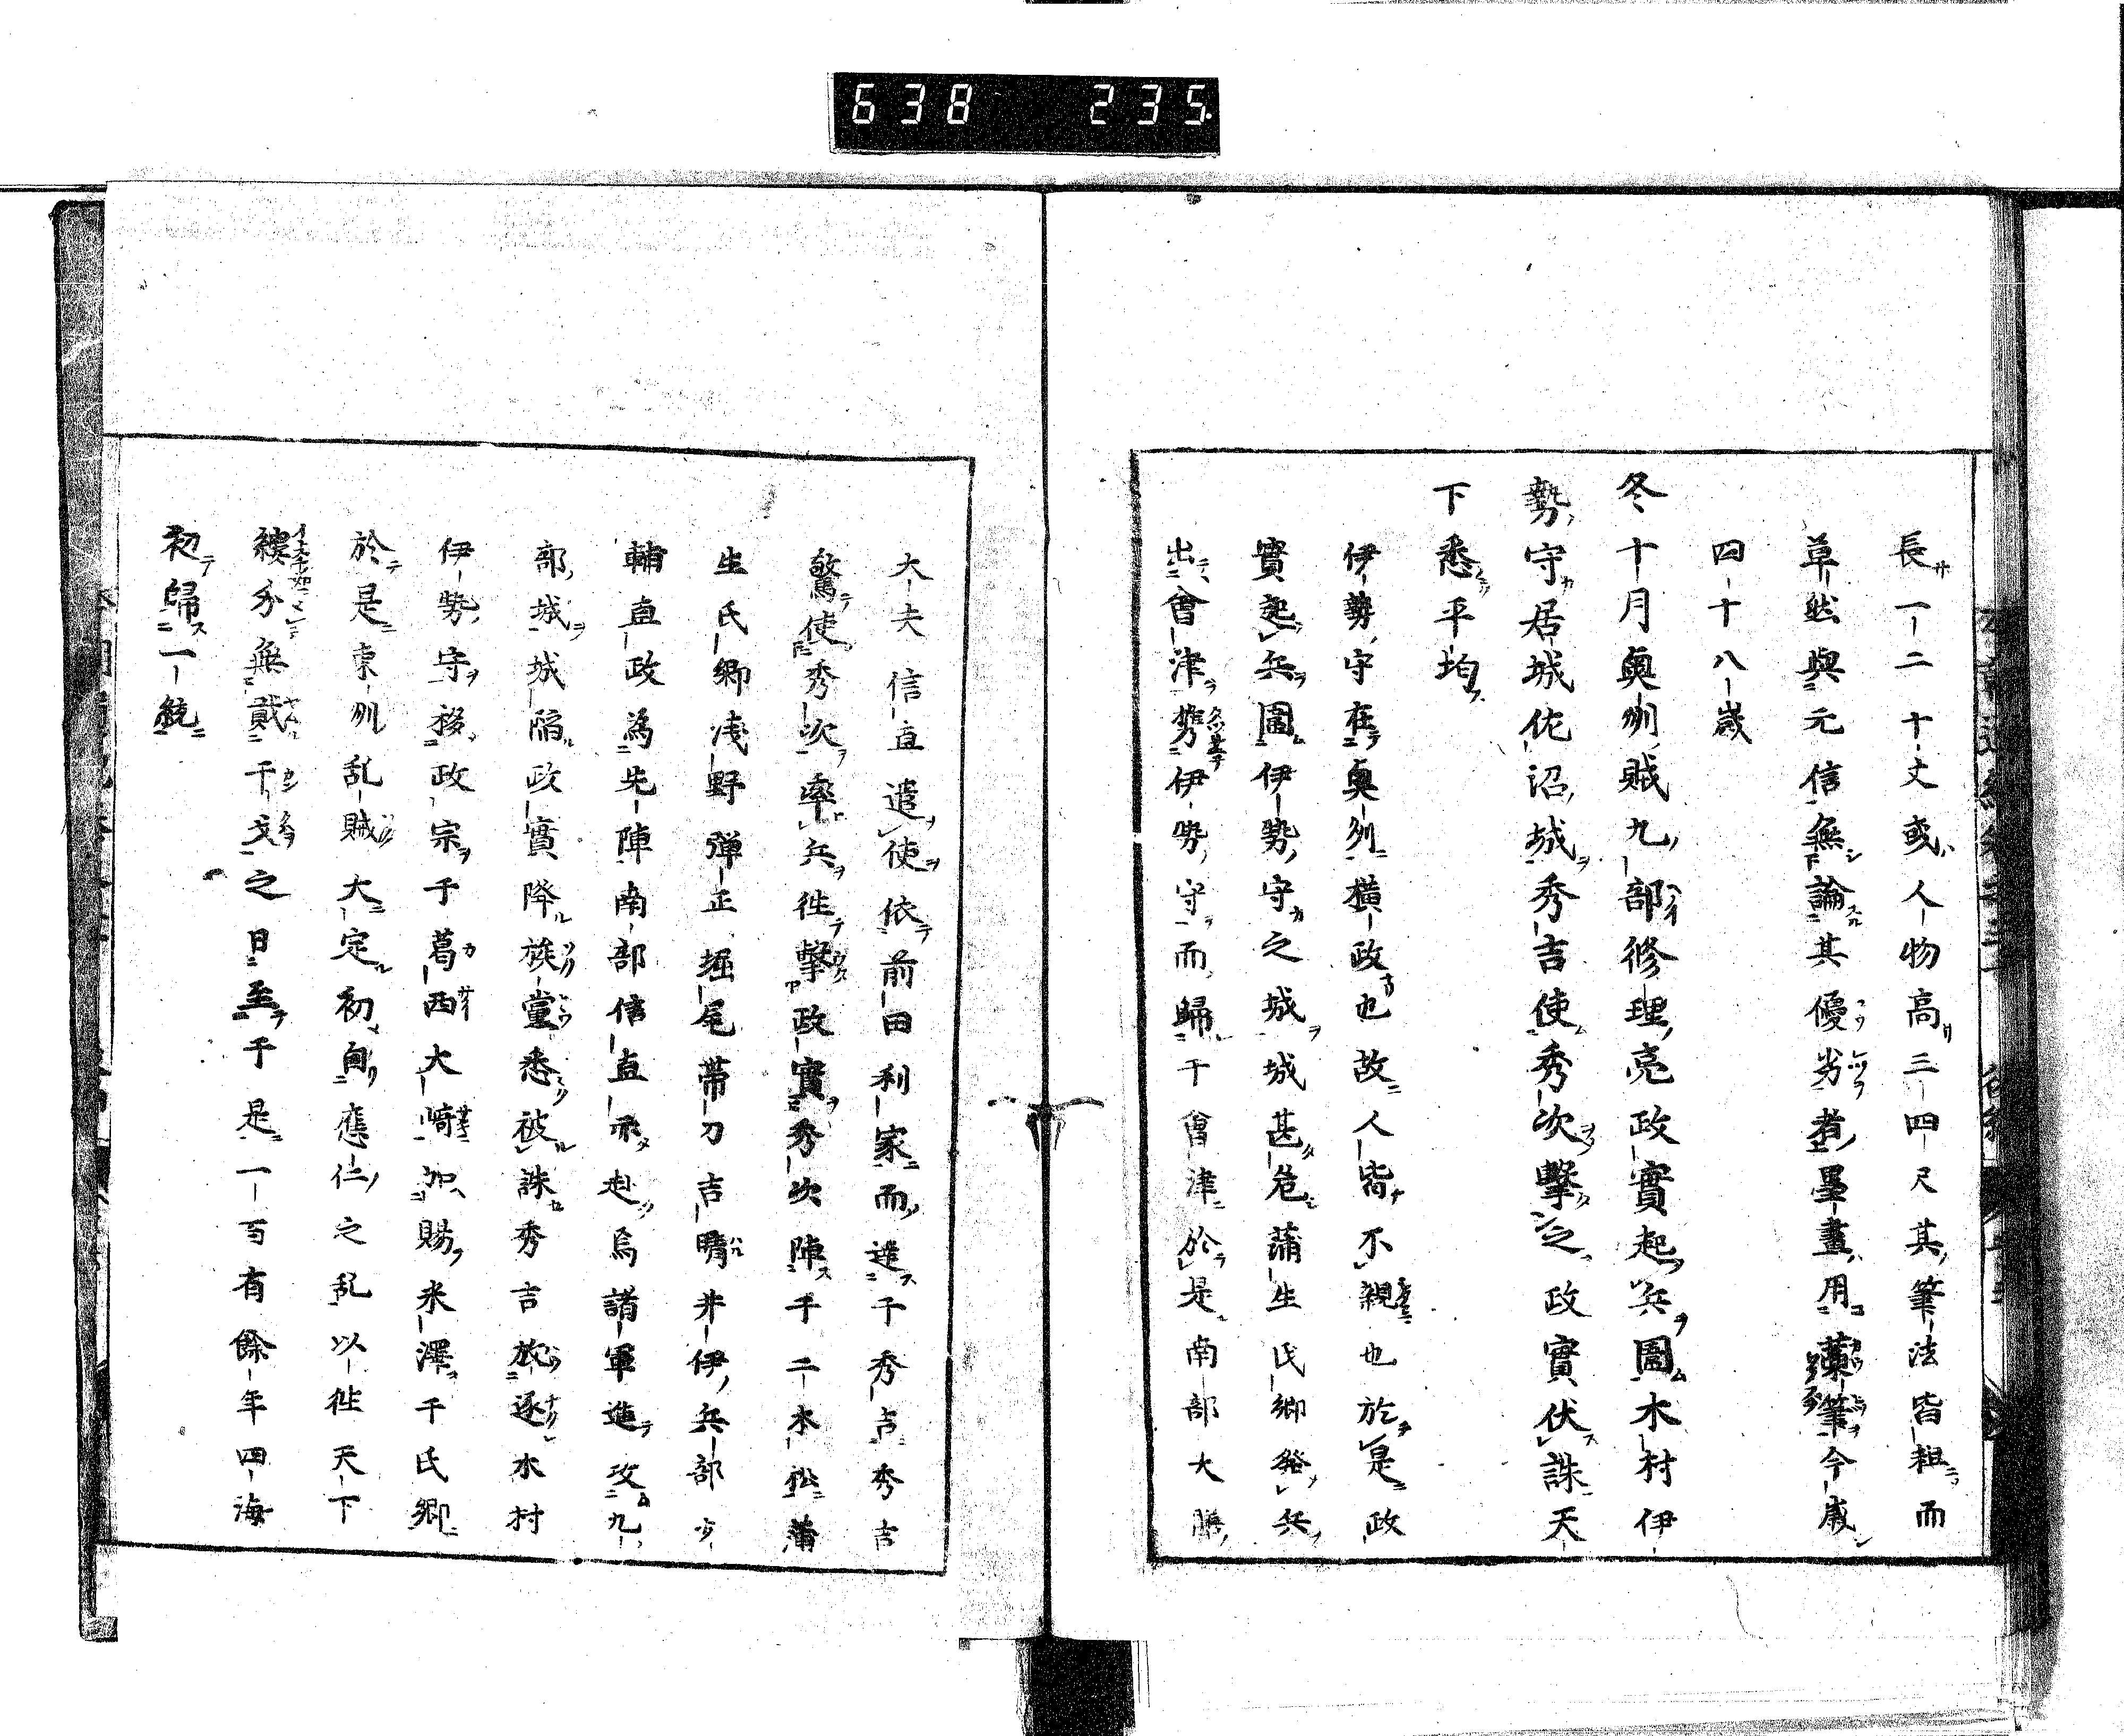 638 235.
長一二十丈或人物高三四尺其筆法皆粗而
草然與元信無論其優劣者墨畫用藁筆今歳
四十八歳
冬十月奥州賊九部修理亮政實起兵圖木村伊
勢守居城佐沼城秀吉使秀次擊之政實伏誅天
下悉平均
伊勢守在奥州橫政也故人皆不親也於是政
實起兵圖伊勢守之城城甚危蒲生氏郷發兵
出會津携伊勢守而歸于會津於是南部大膳
大夫信直遣使依前田利家而達于秀吉秀吉
驚使秀次率兵徃擊政實秀次陣于二本松蒲
生氏郷浅野弾正堀尾帯刀吉晴井伊兵部少
輔直政為先陣南部信直亦赴焉諸軍進攻九
部城城陥政實降族黨悉被誅秀吉放逐木村
伊勢守移政宗于葛西大﨑加賜米澤于氏郷
於是東州乱賊大定初自應仁之乱以徃天下
縷分無貳干戈之日至于是一百有餘年四海
初歸一統